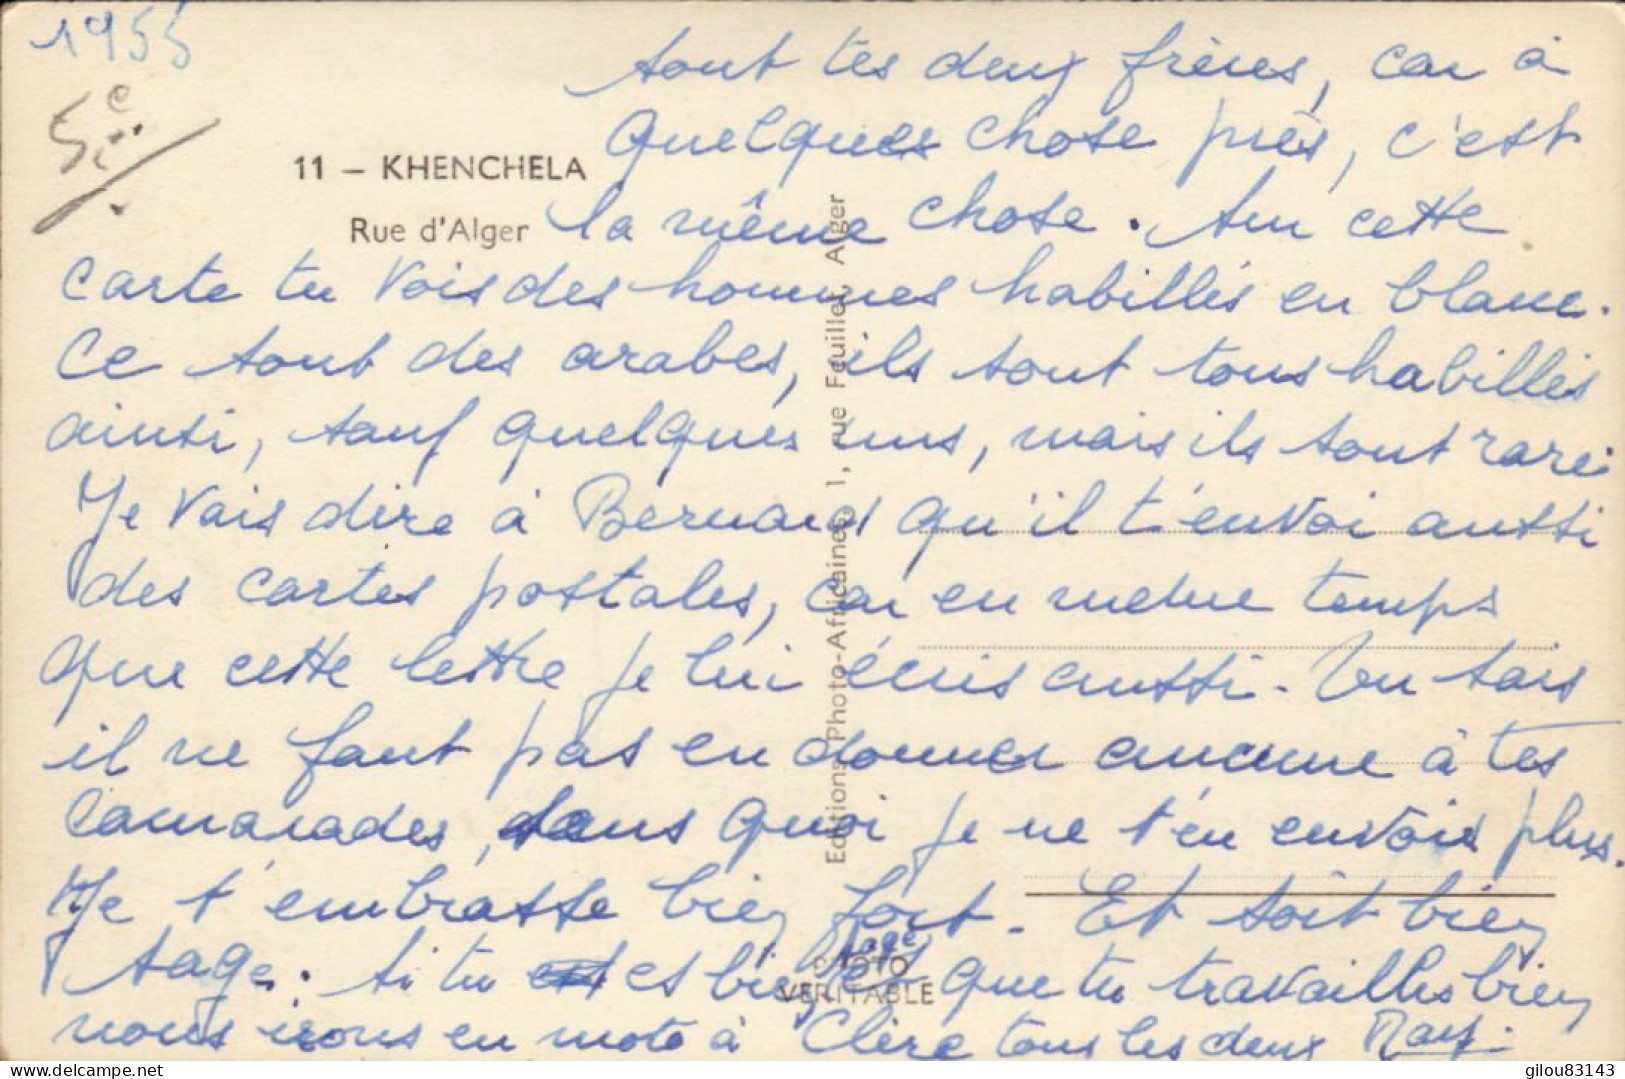 1955
5e
11 – KHENCHELA
Rue d'Alger
sont tes deux frères, car à
quelques chose près, c'est
la même chose. Sur cette
carte tu vois des hommes habillés en blanc.
Ce sont des arabes, ils sont tous habillés
ainsi, sauf quelques uns, mais ils sont rares
Je vais dire à Bernard qu'il t'envoi aussi
des cartes postales, car en meme temps
que cette lettre je lui écris aussi. Tu sais
il ne faut pas en donner aucune à tes
camarades, sans quoi je ne t'en envois plus.
Je t'embrasse bien fort. Et soit bien
sage. Si tu es bien sage, que tu travailles bien
nous irons en moto à Clère tous les deux
Editions Photo-Africaines, 1, rue Feuillet, Alger
PHOTO
VERITABLE
delcampe.net
gilou83143